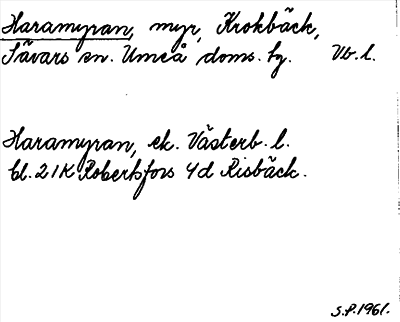 Haramyran, myr, Krokbäck,
Sävars sn. Umeå doms. hg. Vb. l.
Haramyran, ek. Västerb. l.
bl. 21K Robertsfors 4d Risbäck.
S.P. 1961.